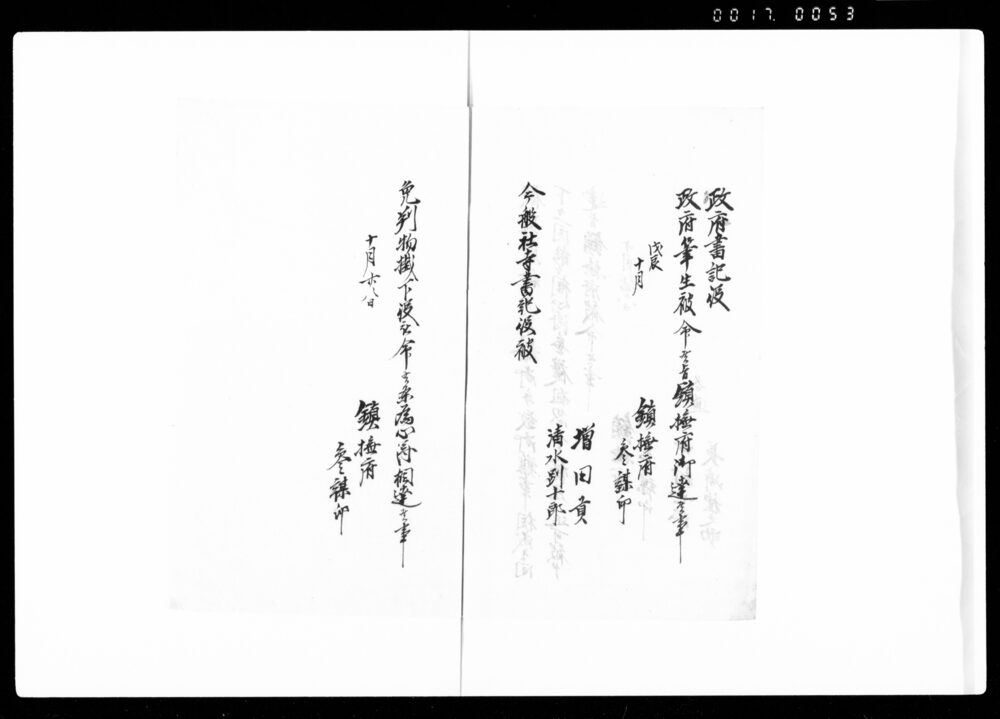 0017.0053
政府書記役
政府筆生被命候旨鎮撫府御達候事
戊辰
十月
鎮撫府
参謀印
増田貢
清水別十郎
今般社寺書記役被
免判物掛下役被命候条為心得相達候事
十月廿八日
鎮撫府
参謀印